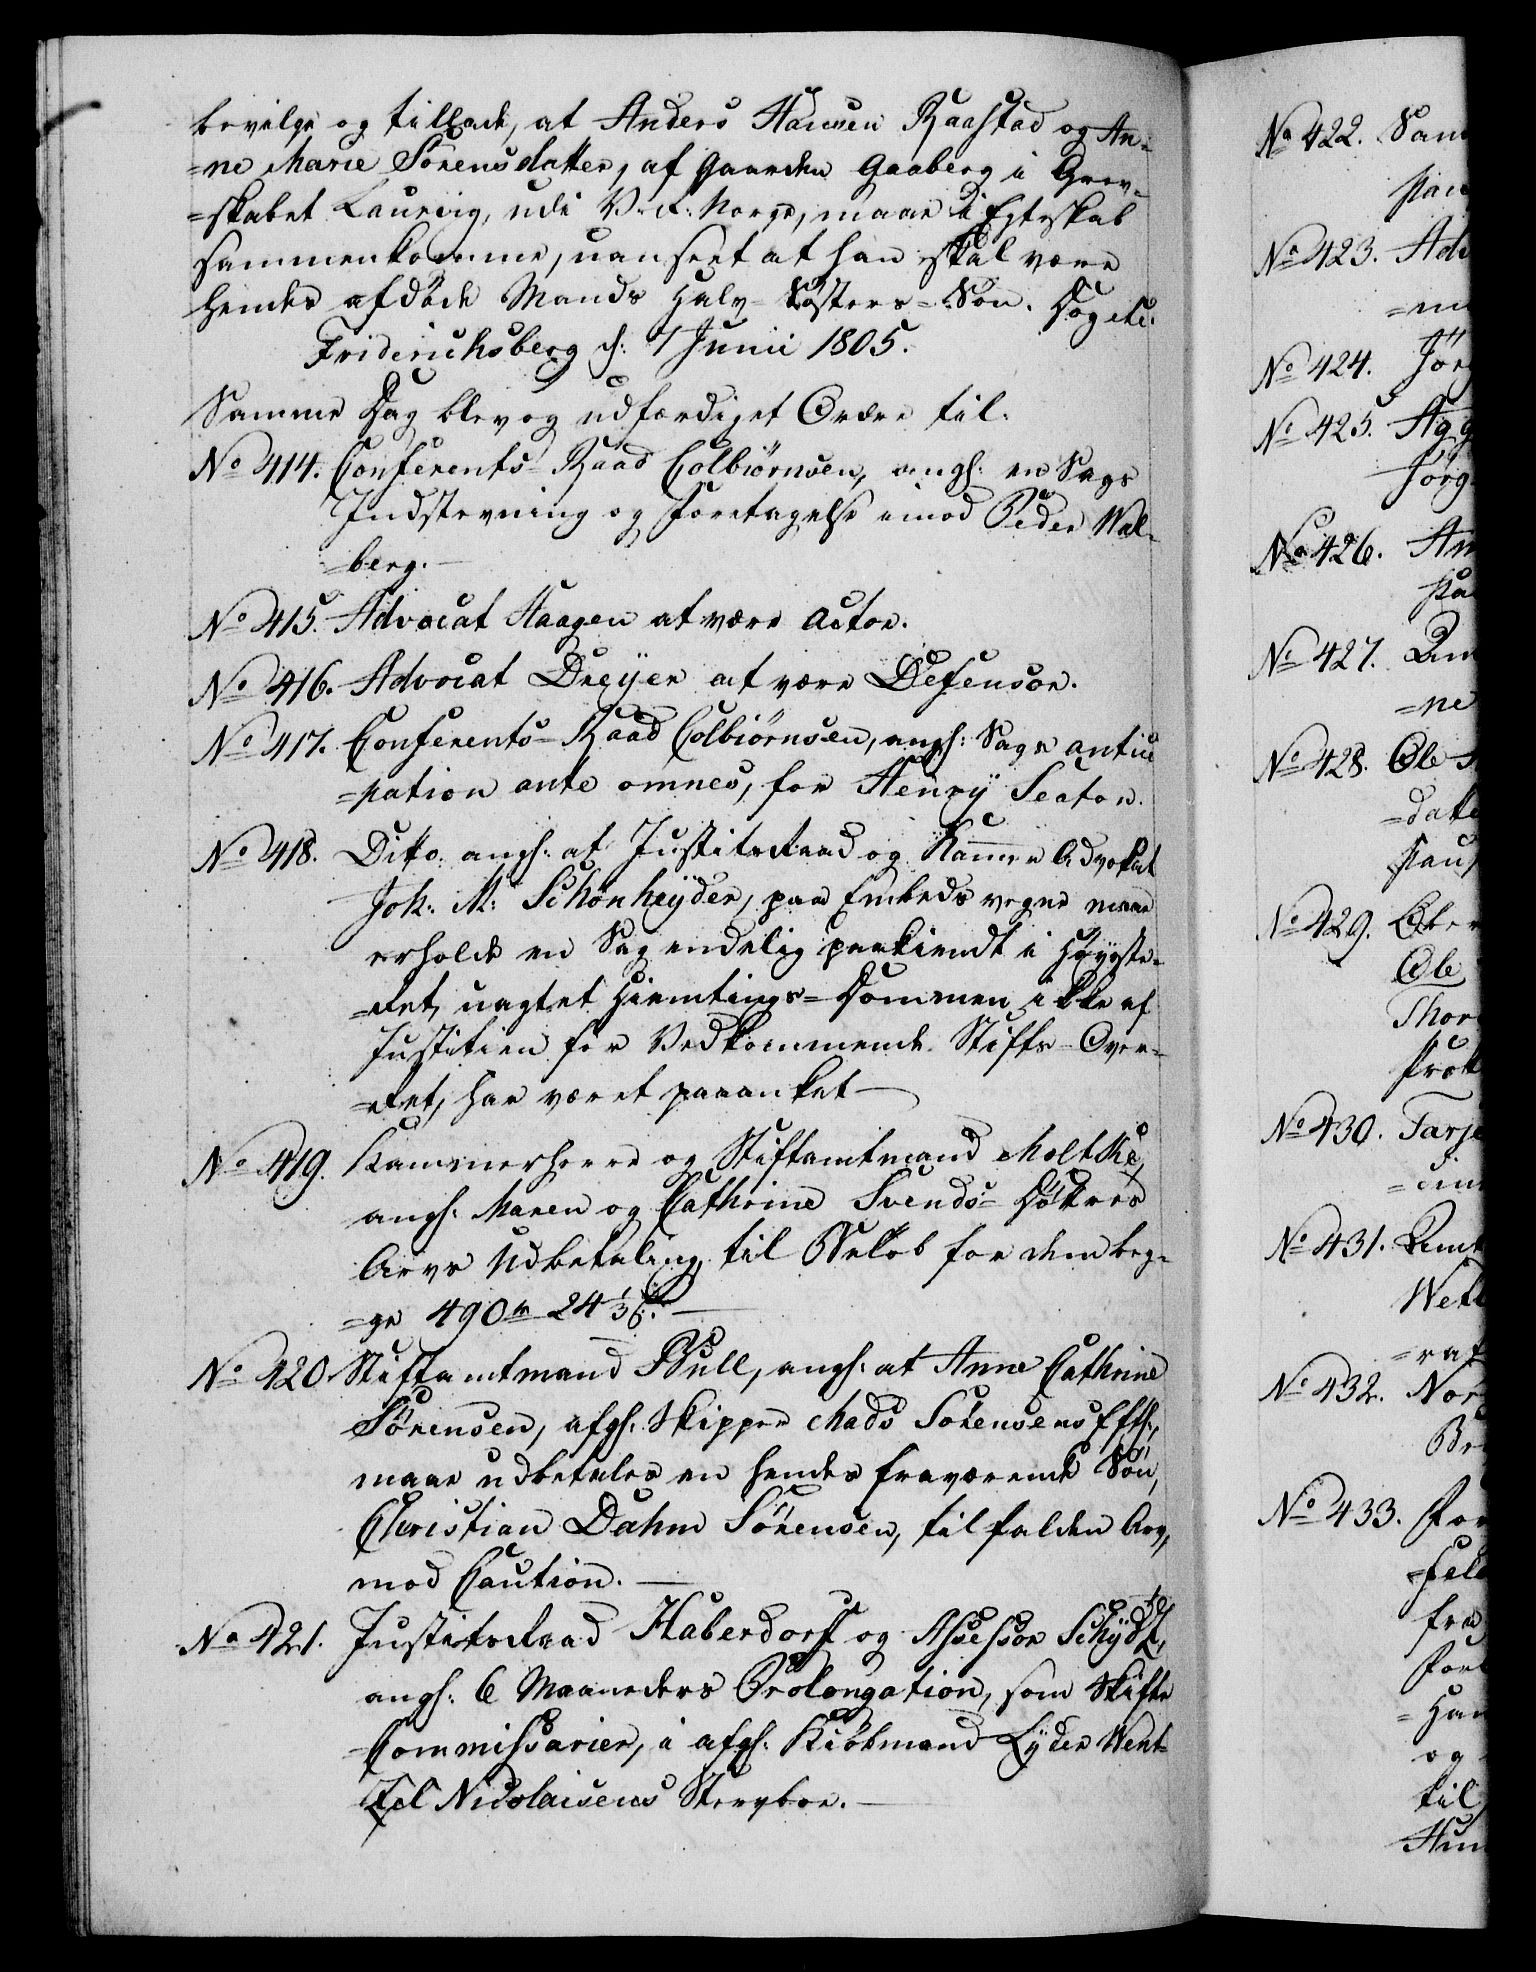 bevilge og tillade, at Anders Hansen Raastad og An-
=ne Marie Sörensdatter, af Gaarden Gaaberg i Grev-
=skabet Laurvig, udi V. R. Norge, maae i Egteskab
sammenkomme, uanseet at han skal være
hendes afdöde Mands Halv-Søsters-Søn. Dog etc.
Friderichsberg d: 7 Junii 1805.
Samme Dag blev og udfærdiget Ordre til.
No 414. Conferents-Raad Colbiörnsen, angl: en Sags
Indstevning og Foretagelse imod Peder Wal-
=berg.
No 415. Advocat Haagen at være Actor.
No 416. Advocat Dreÿer at være Defensor.
No 417. Conferents-Raad Colbiörnsen, angl: Sags antici
=pation ante omnes, for Henrÿ Seaton.
No 418. Ditto. angl: at Justitsraad og Kammer Advokat
Joh: M: Schönheÿder, paa Embeds vegne maae
erholde en Sag endelig paakiendt i Høyeste-
=Ret, uagtet Hiemtings=Dommen ikke af
Justitien for Vedkommende Stifts-Over-
=Ret, har været paaanket —
No 419. Kammerherre og Stiftamtmand Moltke,
angl: Maren og Cathrine Svends-Døttres
Arvs Udbetaling, til Beløb for dem beg-
=ge 490 rd 24 1/3 ß. —
No 420 Stiftamtmand Bull, angl: at Anne Cathrine
Sörensen, afgl: Skipper Mads Sörensens Efth:,
maae udbetales en hendes fraværende Søn,
Christian Dahm Sörensen, tilfalden Arv,
mod Caution. —
No 421. Justitsraad Haberdorff og Assessor Schÿdtz,
angl: 6 Maaneders Prolongation, som Skifte
Commissarier, i afgl: Kiöbmand Lÿder Went-
zel Nicolaisens Stervboe. —
No 422. Sam
No 423. Adv
No 424. Jör
No 425. Agg
Jörg
No 426. An
No 427. Am
=ne
No 428. Ole
=date
No 429. Ober
Ole
Thor
No 430. Tarje
No 431. Amt
No 432. Nor
No 433. For
=feld
fra
og
til